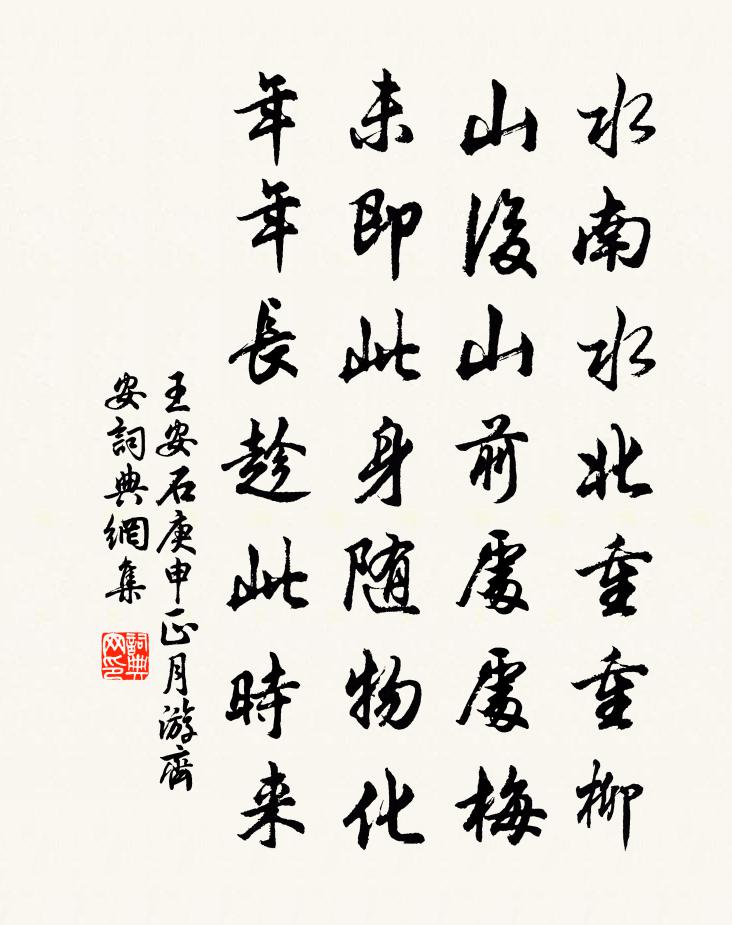 水南水北重重柳
山後山前處處梅
未即此身随物化
年年長趁此時来
王安石庚申正月游齊
安詞典網集
詞典网印